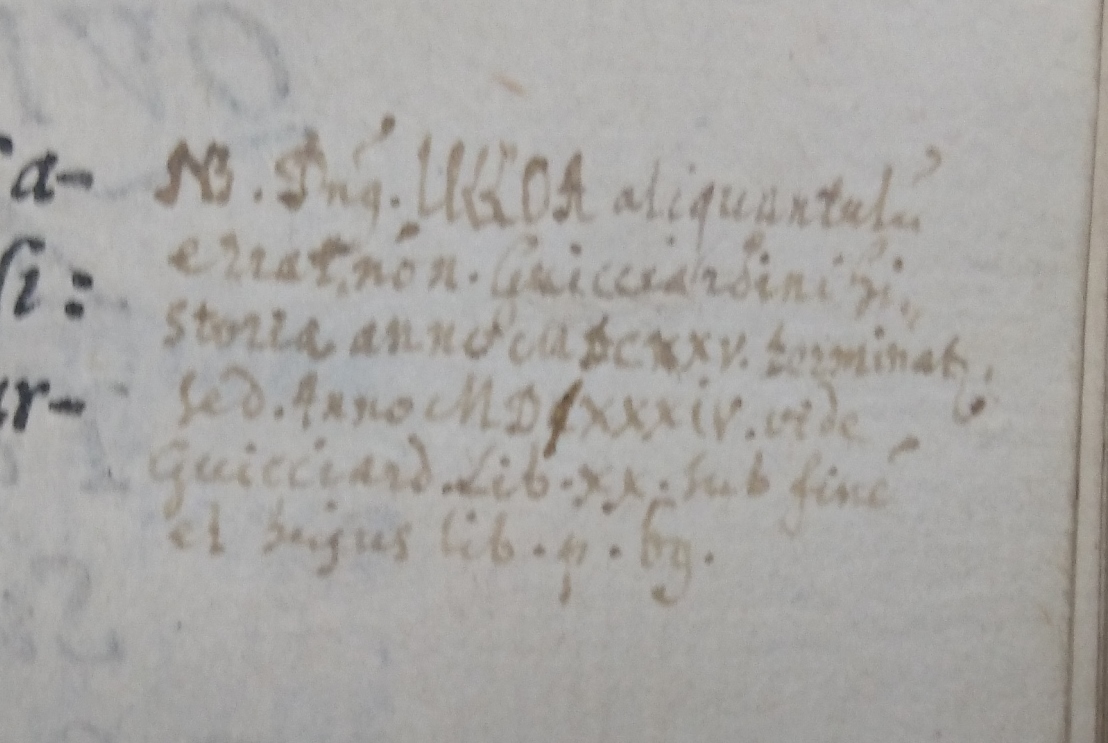 a- NB. Dnq. ULLOA aliquantulū
errat, nón n. Guicciardini Hi,,
si: storia anno MDCXXV. terminatq.
ur- sed. Anno MD XXXIV. vide
Guicciard. Lib. XX. sub finē
et huius lib.